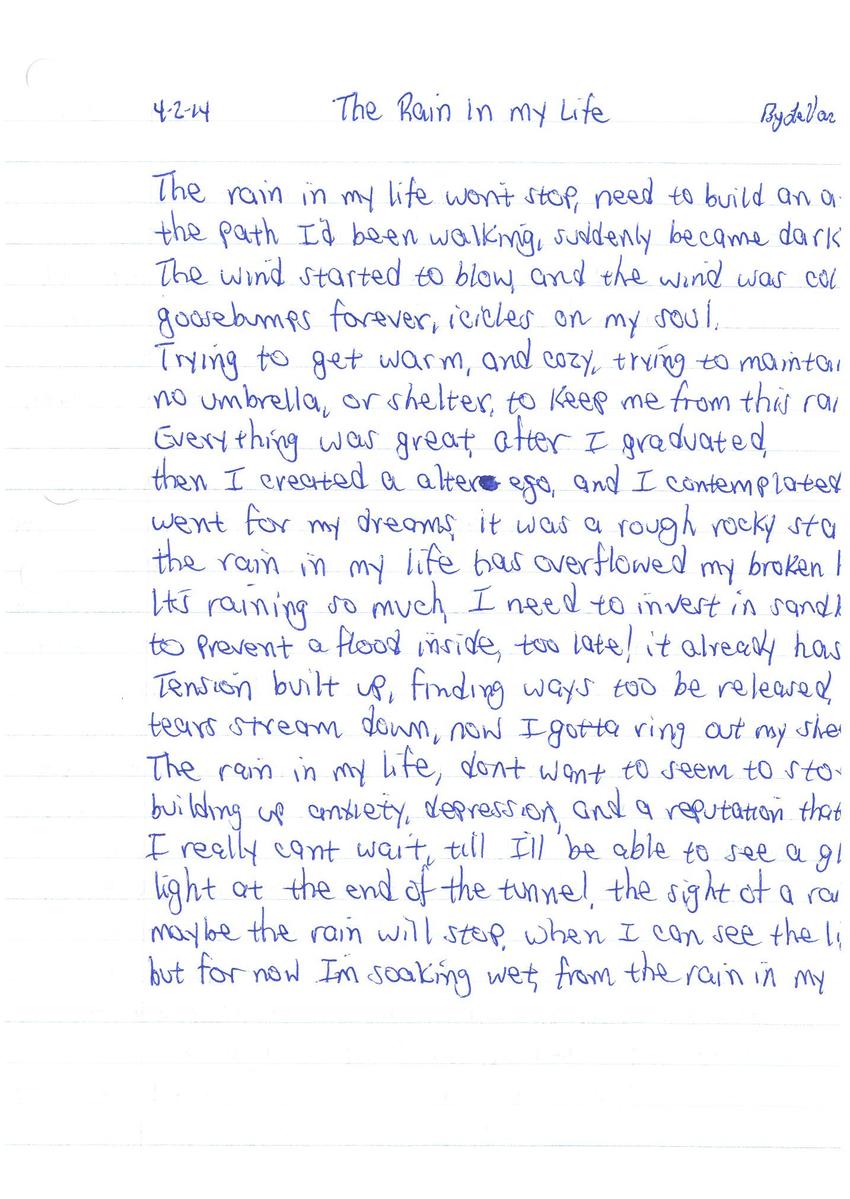 4-2-14 The Rain in my Life
The rain in my life won't stop, need to build an
the path I'd been walking, suddenly became dark
The wind started to blow, and the wind was
goosebumps forever, icicles on my soul.
Trying to get warm, and cozy, trying to
no umbrella, or shelter, to keep me from this
Everything was great, after I graduated,
then I created a alter ego, and I contemplated
went for my dreams, it was a rough rocky
the rain in my life has overflowed my broken
It's raining so much, I need to invest in
to prevent a flood inside, too late! it already has
Tension built up, finding ways too be released,
tears stream down, now I gotta ring out my
The rain in my life, dont want to seem to
building up anxiety, depression, and a reputation that
I really cant wait, till I'll be able to see a
light at the end of the tunnel, the sight of a
maybe the rain will stop, when I can see the
but for now I'm soaking wet, from the rain in my